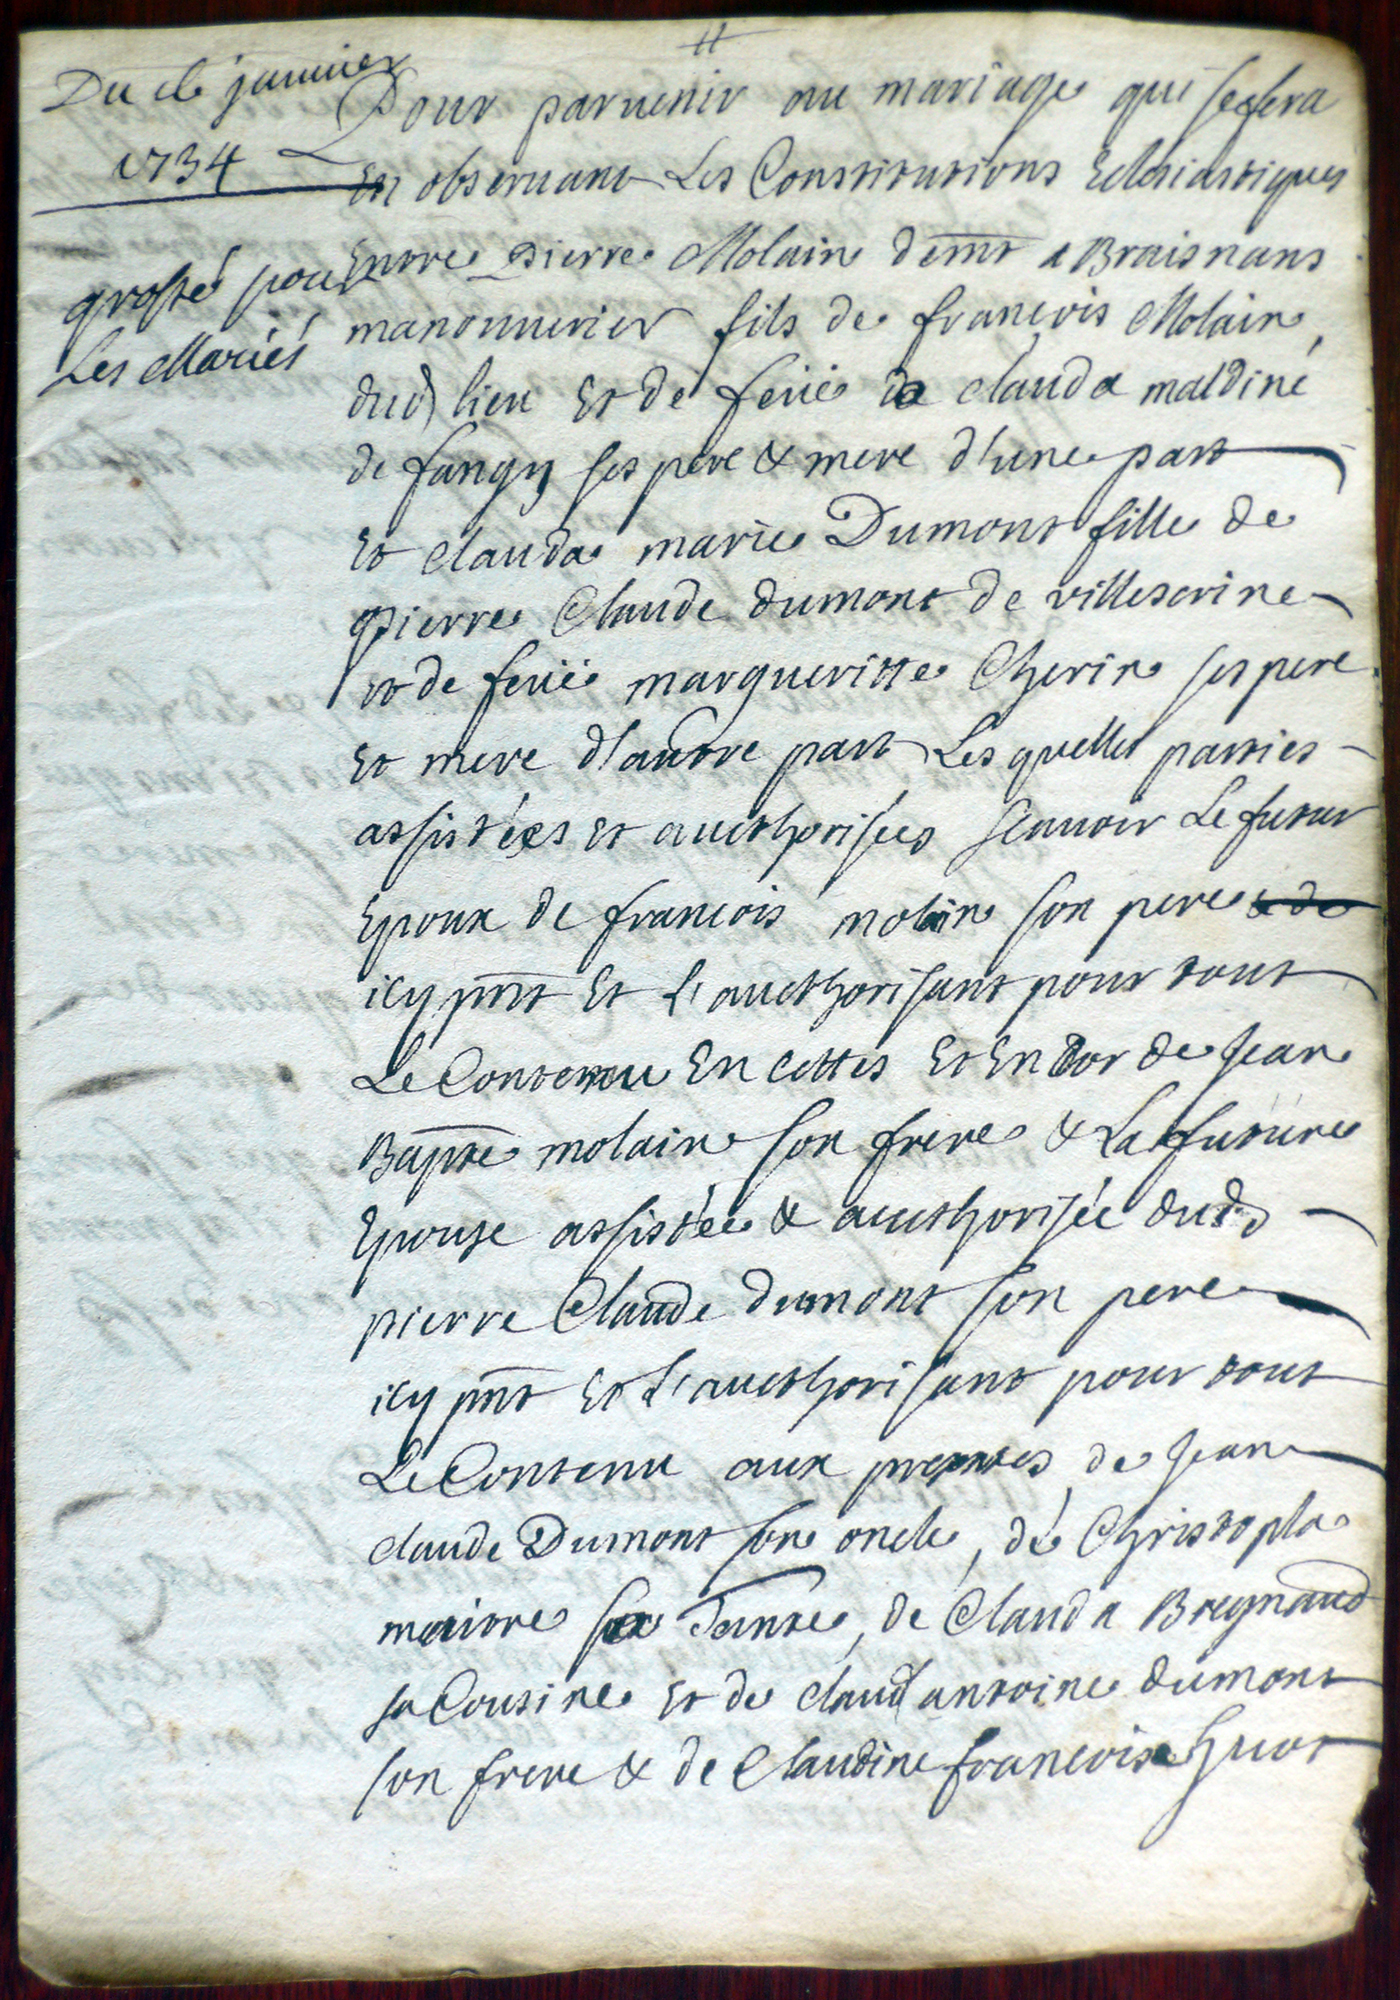 Du janvier
1734
grossé pour
Les Mariés
Pour parvenir au mariage qui se fera
En observant Les Constitutions Eclesiastiques
Entre Pierre Molain demt a Braisnans
manouvrier fils de francois Molain,
dud) lieu Et de feüe de clauda maldiné
de fangy ses pere & mere d'une part
Et clauda marie Dumont fille de
Pierre Claude dumont de villeserine
et de feüe margueritte Cherin ses pere
Et mere d'autre part Les quelles parties
assistées et aucthorisées scauoir Le futur
Epoux de francois molain son pere & de
icy pnt Et L'aucthorisant pour tout
Le Contenu En cettes Et En cor de Jean
Bapte molain son frere & La future
Epouse assistée & aucthorisée dud
pierre Claude dumont son pere
icy pnt Et L'aucthorisant pour tout
Le Contenu aux pregntes de Jean
claude Dumont son oncle, de Christopla
maitre sa Tante, de Clauda Bregnaud
sa Cousine Et de claud antoine dumont
son frere & de Claudine francoise huot